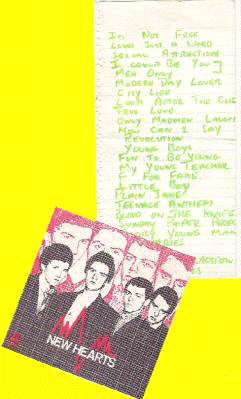 I'm Not Free
Love's Just A Word
Sexual Attractions
I Could Be You
Men Only
Modern Day Lover
City Life
Look After The
True Love
Only Madmen Laugh
How Can I Say
Revolution
Young Boys
Fun To Be Young
My Young Teacher
F For Fame
Little Boy
Plain Jane
Teenage Anthem
Blood On The Knife
Sunday Paper
Only Young Man
NEW HEARTS